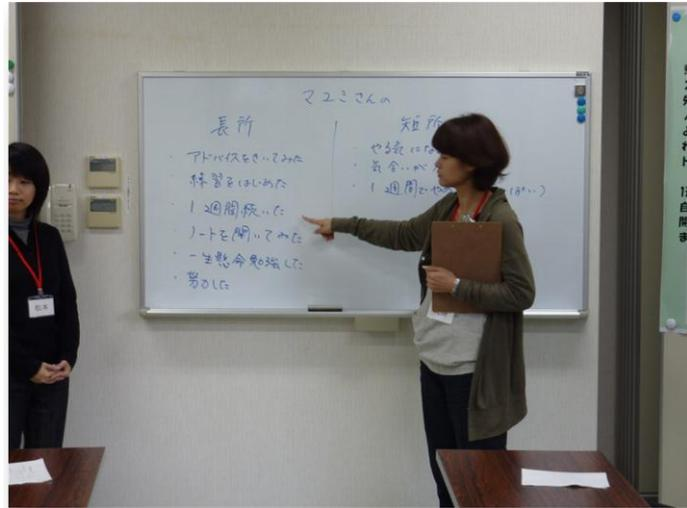 マユミさんの
長所
・アドバイスをきいてみた
練習をはじめた
1週間続いた
・ノートを開いてみた
・一生懸命勉強した
・努力した
短所
・やる気にな
・気合いが
・1週間でや
松本